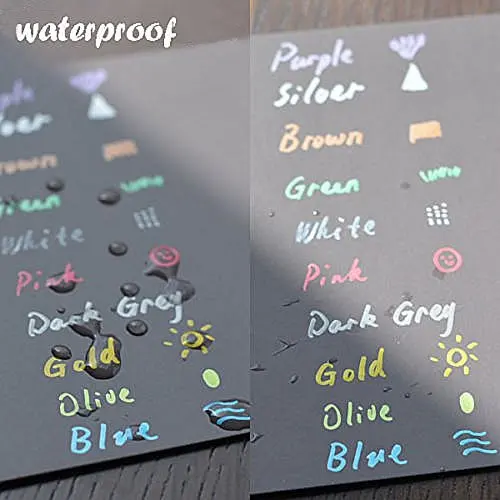 waterproof
Purple
Siloer
Brown
Green
White
Pink
Dark Grey
Gold
Olive
Blue
Purple
Siloer
Brown
Green
White
Pink
Dark Grey
Gold
Olive
Blue